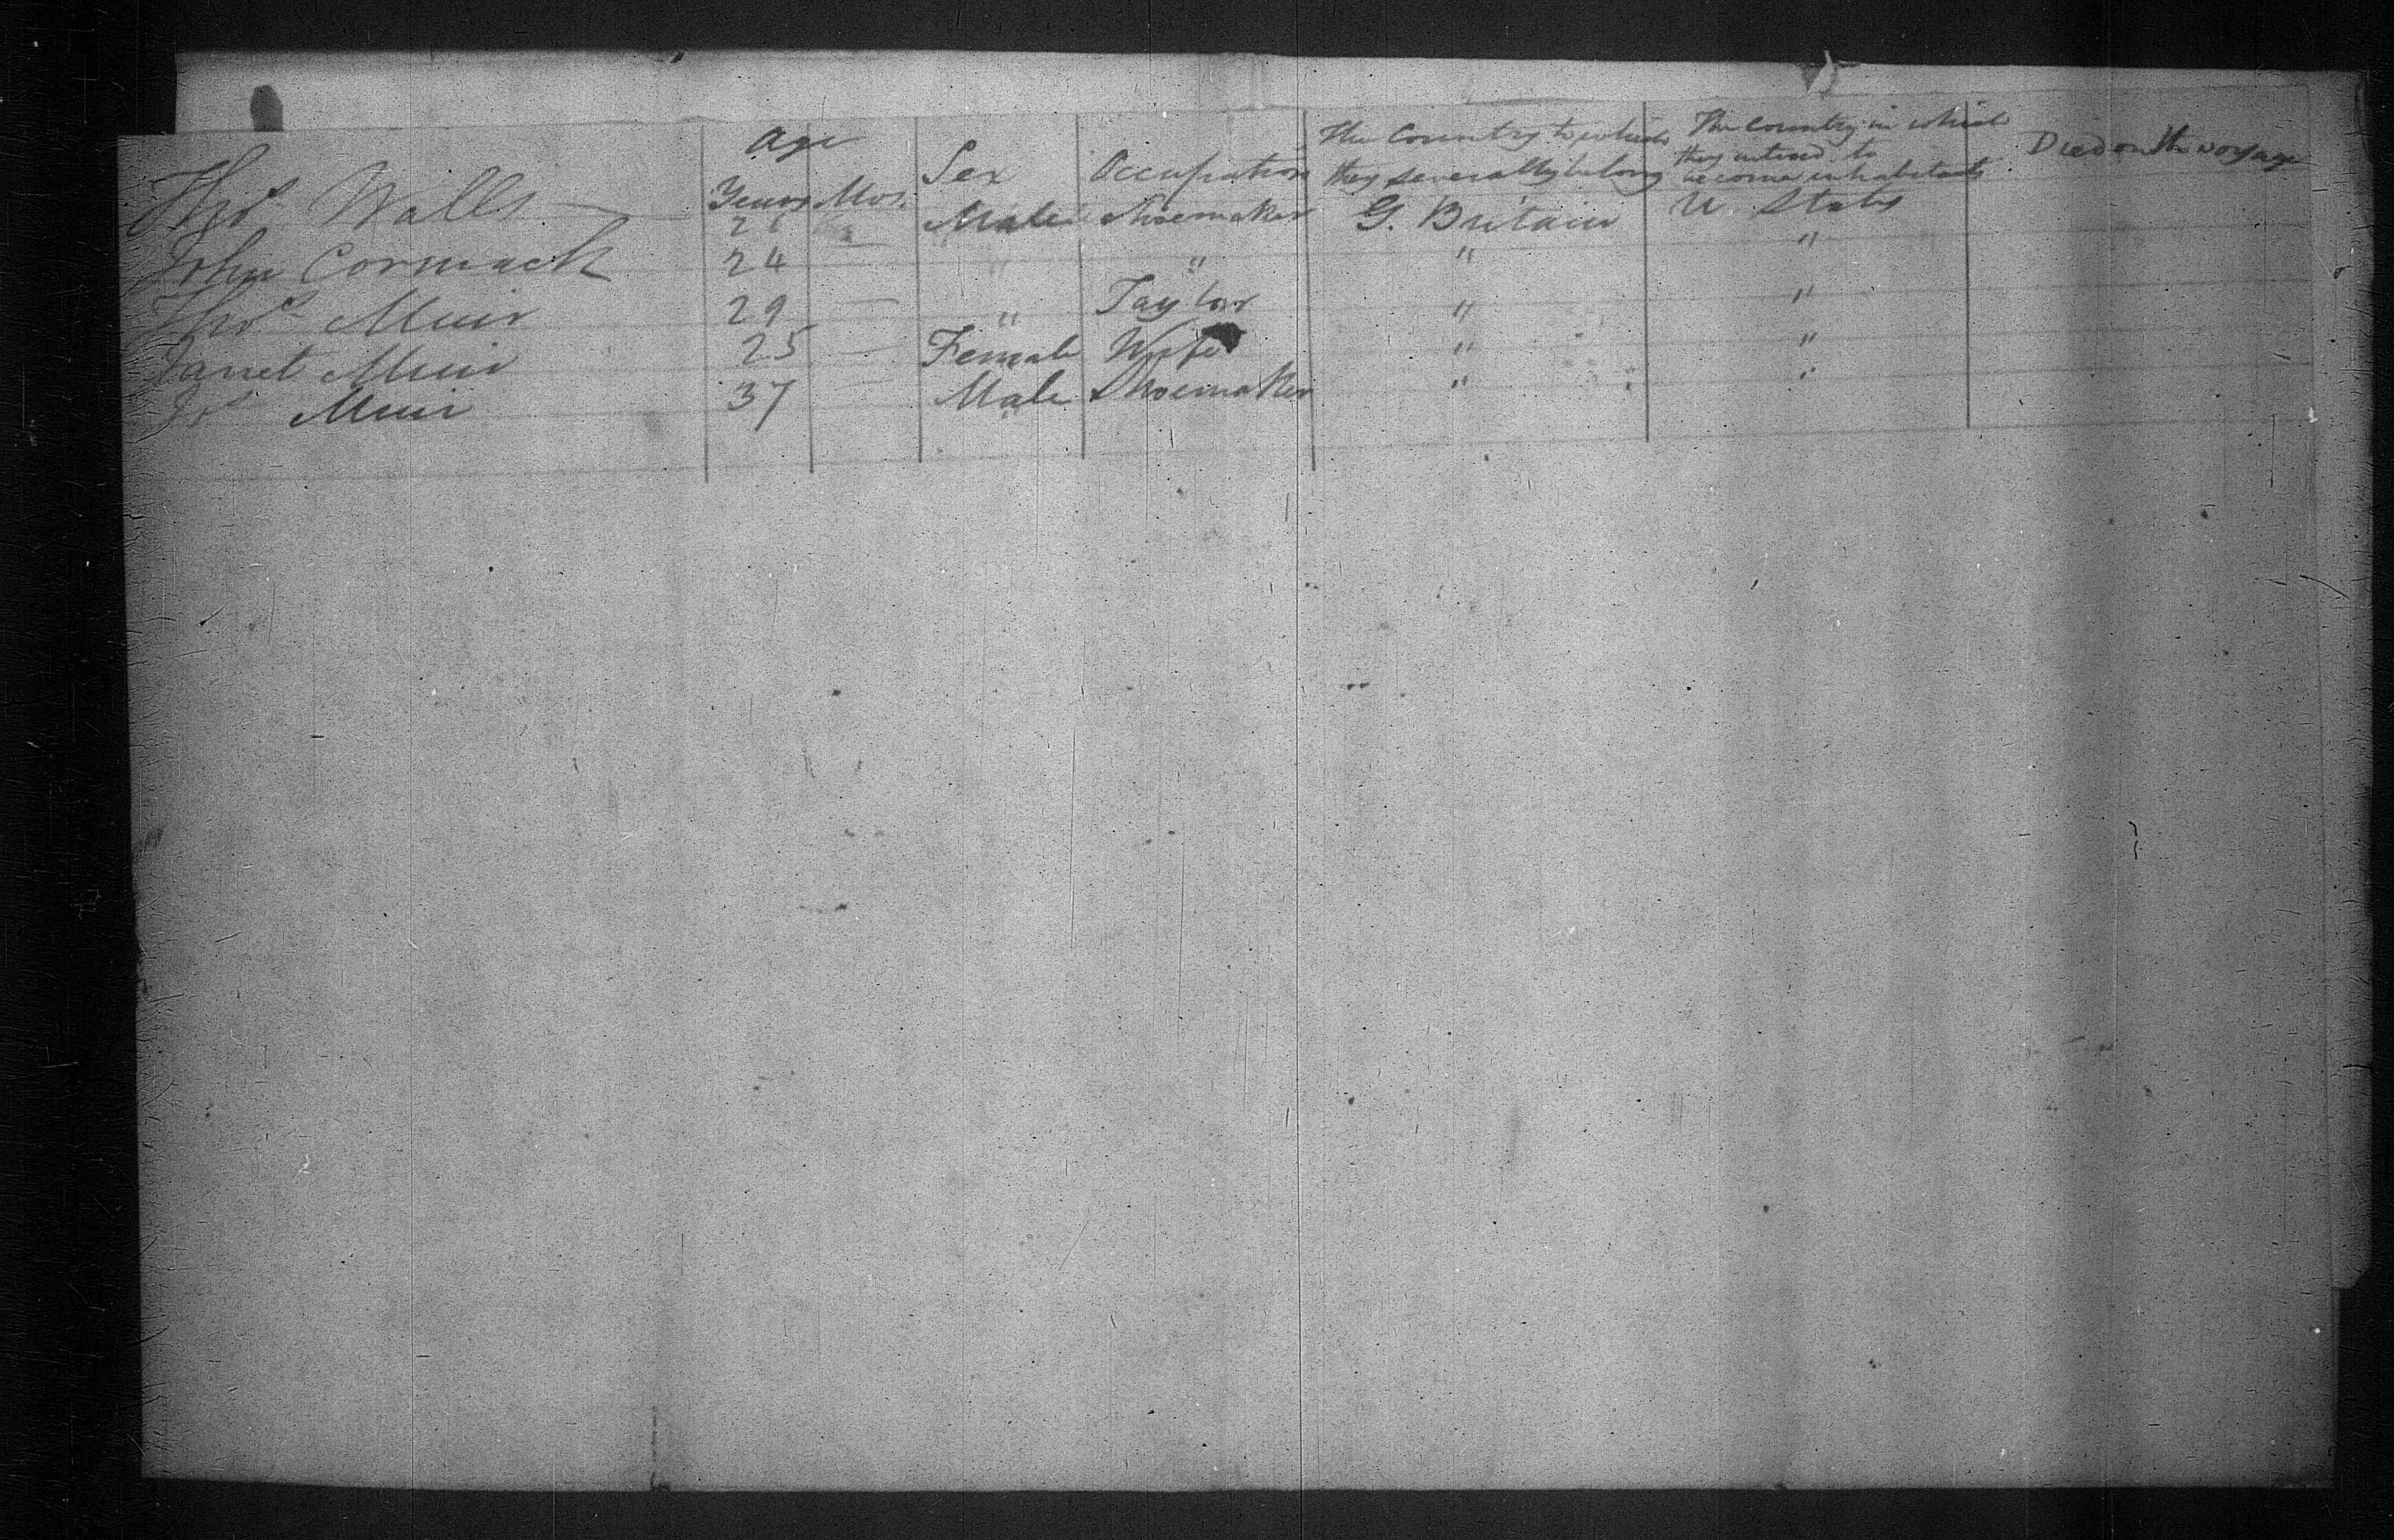 Age
Years Mos. Sex Occupation The Country to which they severally belong The Country in which they intend to become inhabitants Died on the voyage
Thos Walls Male Shoemaker G. Britain U. States
John Cormack 24 — " " " "
Thos Muir 29 — " Taylor " "
Janet Muir 25 — Female Wife " "
Muir 37 Male Shoemaker " "